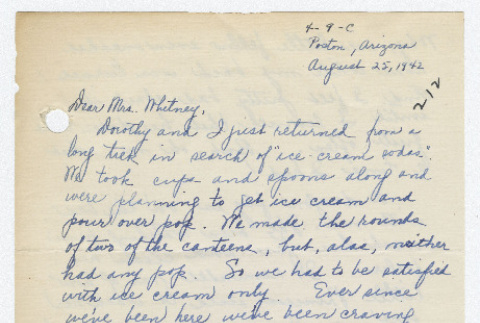 4-9-C
Poston, Arizona
August 25, 1942
212
Dear Mrs. Whitney,
Dorothy and I just returned from a
long trek in search of "ice cream sodas".
We took cups and spoons along and
were planning to get ice cream and
pour over pop. We made the rounds
of two of the canteens, but, alas, neither
had any pop. So we had to be satisfied
with ice cream only. Ever since
we've been here we've been craving